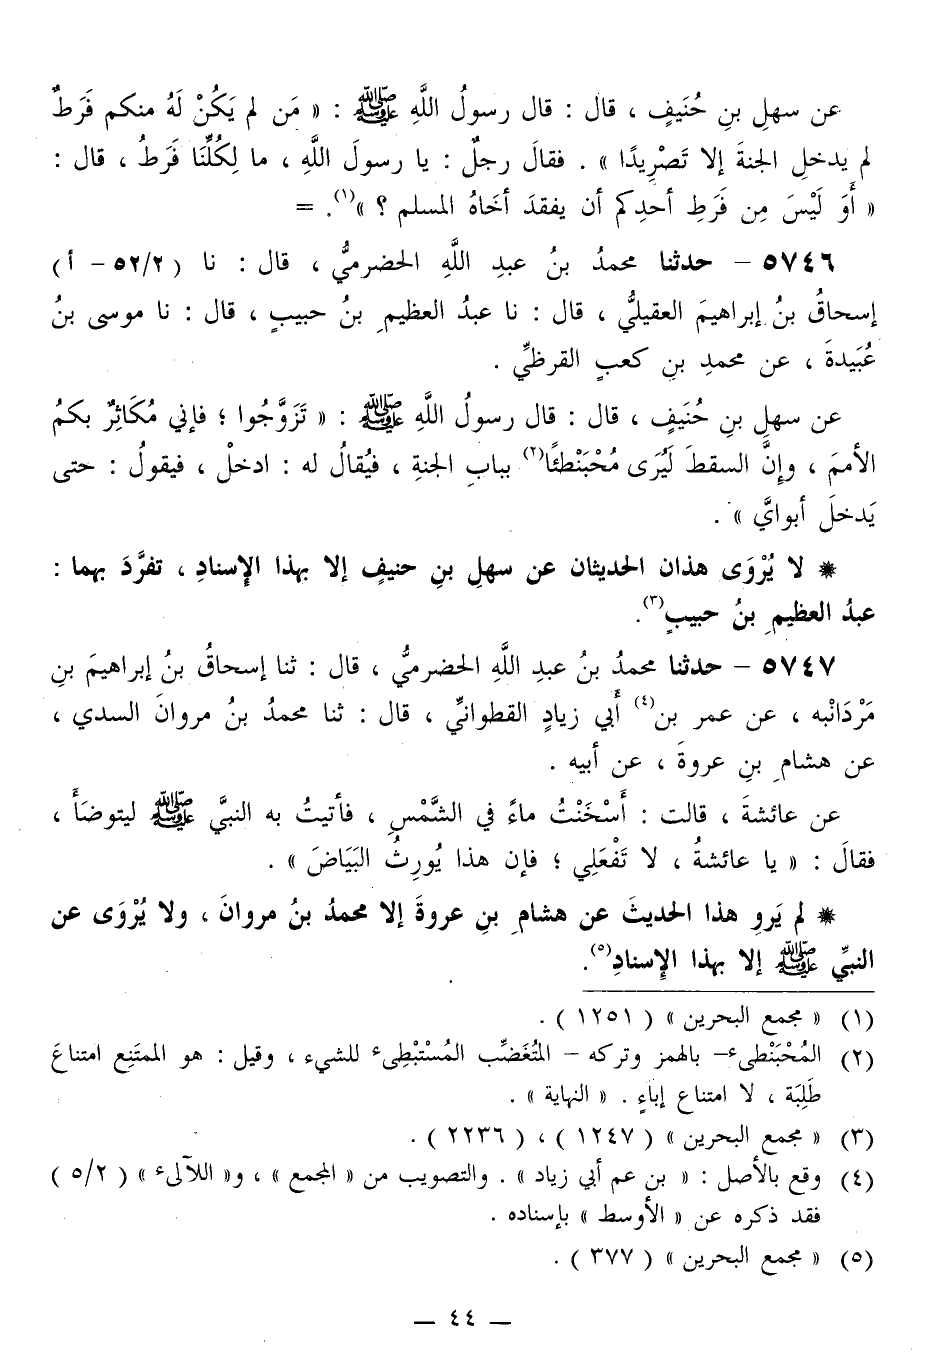 عن سهلِ بنِ حُنَيفٍ ، قال : قال رسولُ اللَّهِ ﷺ : « مَن لم يَكُنْ لَهُ منكم فَرَطٌ
لم يدخلِ الجنةَ إلا تَصْرِيدًا » . فقالَ رجلٌ : يا رسولَ اللَّهِ ، ما لِكُلِّنَا فَرَطُ ، قال :
« أَوَ لَيْسَ مِن فَرَطِ أحدِكم أن يفقدَ أخَاهُ المسلم ؟ »(١). =
٥٧٤٦ – حدثنا محمدُ بنُ عبدِ اللَّهِ الحضرميُّ ، قال : نا ( ٥٢/٢ – أ )
إسحاقُ بنُ إبراهيمَ العقيليُّ ، قال : نا عبدُ العظيمِ بنُ حبيبٍ ، قال : نا موسى بنُ
عُبَيدةَ ، عن محمدِ بنِ كعبٍ القرظيِّ .
عن سهلِ بنِ حُنَيفٍ ، قال : قال رسولُ اللَّهِ ﷺ : « تَزَوَّجُوا ؛ فإني مُكَاثِرٌ بكمُ
الأممَ ، وإنَّ السقطَ لَيُرَى مُحْبَنْطئًا(٢) ببابِ الجنةِ ، فيُقالُ له : ادخلْ ، فيقولُ : حتى
يَدخلَ أبوايَّ » .
* لا يُرْوَى هذان الحديثان عن سهلِ بنِ حنيفٍ إلا بهذا الإسنادِ ، تفرَّدَ بهما :
عبدُ العظيمِ بنُ حبيبٍ(٣).
٥٧٤٧ – حدثنا محمدُ بنُ عبدِ اللَّهِ الحضرميُّ ، قال : ثنا إسحاقُ بنُ إبراهيمَ بنِ
مَرْدَانْبه ، عن عمر بن(٤) أَبي زيادٍ القطوانيِّ ، قال : ثنا محمدُ بنُ مروانَ السدي ،
عن هشامِ بنِ عروةَ ، عن أبيه .
عن عائشةَ ، قالت : أَسْخَنْتُ ماءً في الشَّمْسِ ، فأتيتُ به النبيَّ ﷺ ليتوضَأَ ،
فقالَ : « يا عائشةُ ، لا تَفْعَلِي ؛ فإن هذا يُورِثُ البَيَاضَ » .
* لم يَروِ هذا الحديثَ عن هشامِ بنِ عروةَ إلا محمدُ بنُ مروانَ ، ولا يُرْوَى عن
النبيِّ ﷺ إلا بهذا الإسنادِ(٥).
(١) « مجمع البحرين » ( ١٢٥١ ) .
(٢) المُحْبَنْطيء– بالهمز وتركه – المتُغَضِّب المُسْتَبْطِىء للشيء ، وقيل : هو الممتَنِع امتناعَ
طَلِبَة ، لا امتناع إباءٍ . « النهاية » .
(٣) « مجمع البحرين » ( ١٢٤٧ ) ، ( ٢٢٣٦ ) .
(٤) وقع بالأصل : « بن عم أبي زياد » . والتصويب من « المجمع » ، و« اللآلىء » ( ٥/٢ )
فقد ذكره عن « الأوسط » بإسناده .
(٥) « مجمع البحرين » ( ٣٧٧ ) .
– ٤٤ –